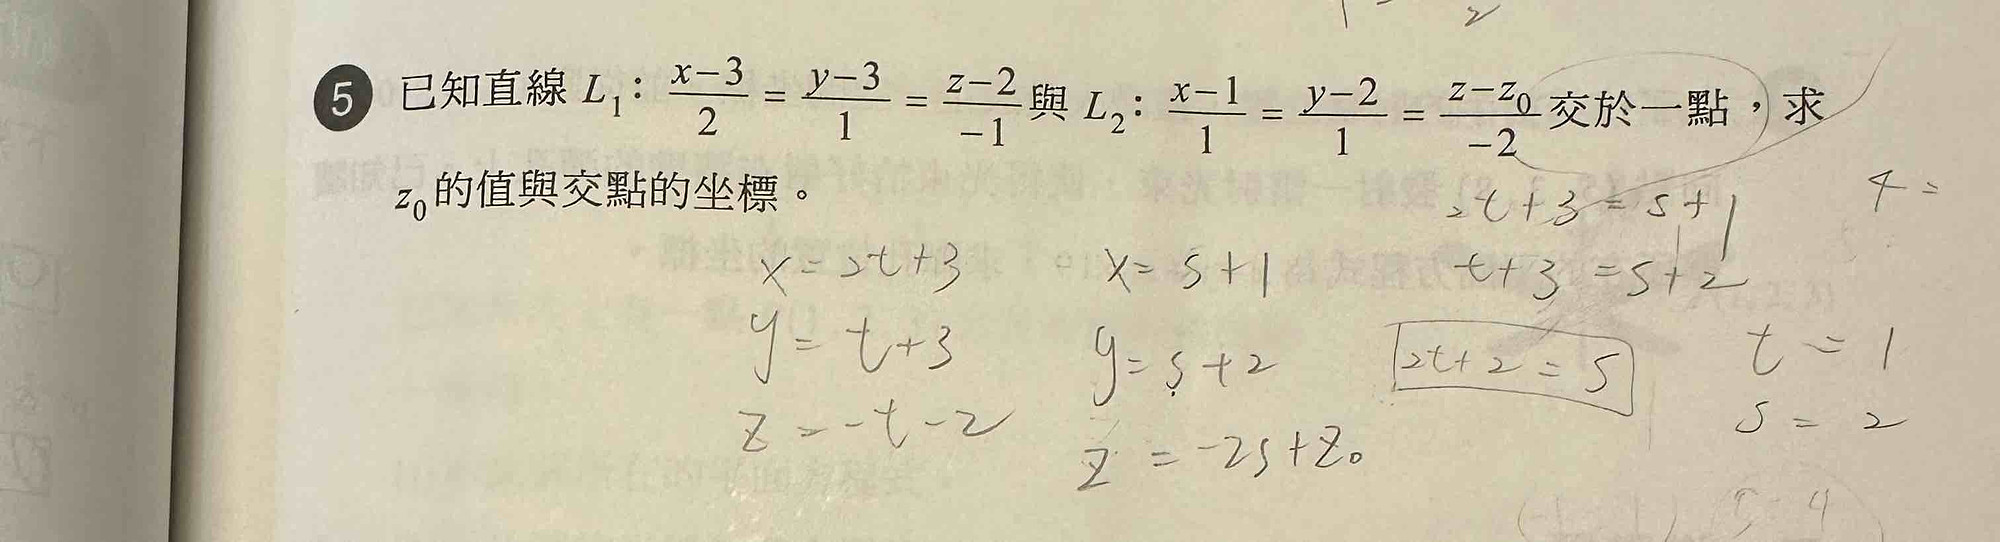 2
5 已知直線 L₁: (x−3)/2 = (y−3)/1 = (z−2)/−1 與 L₂: (x−1)/1 = (y−2)/1 = (z−z₀)/−2 交於一點，求
z₀的值與交點的坐標。
2t+3=s+1
4=
x=2t+3
x=s+1
t+3=s+2
y=t+3
y=s+2
2t+2=s
t=1
z=-t-2
z=-2s+z₀
s=2